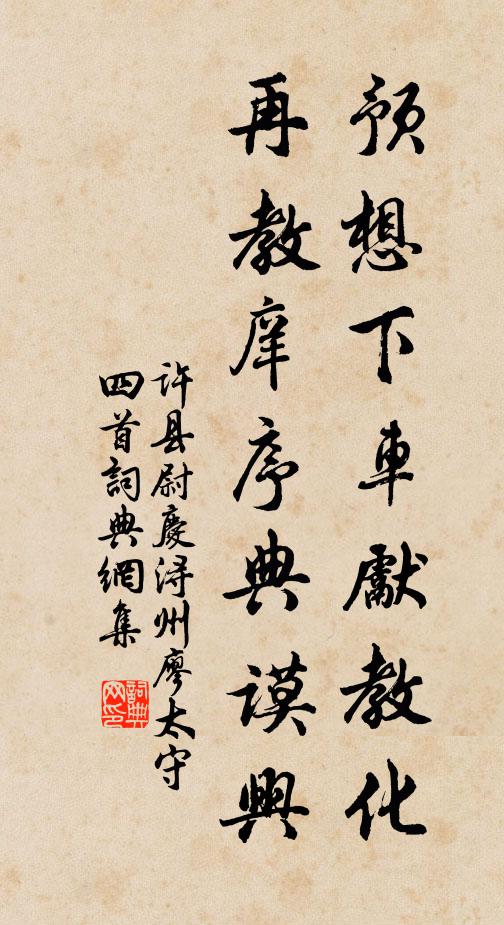 預想下車獻教化
再教庠序典謨興
许县尉慶潯州廖太守
四首詞典網集
詞典
网印